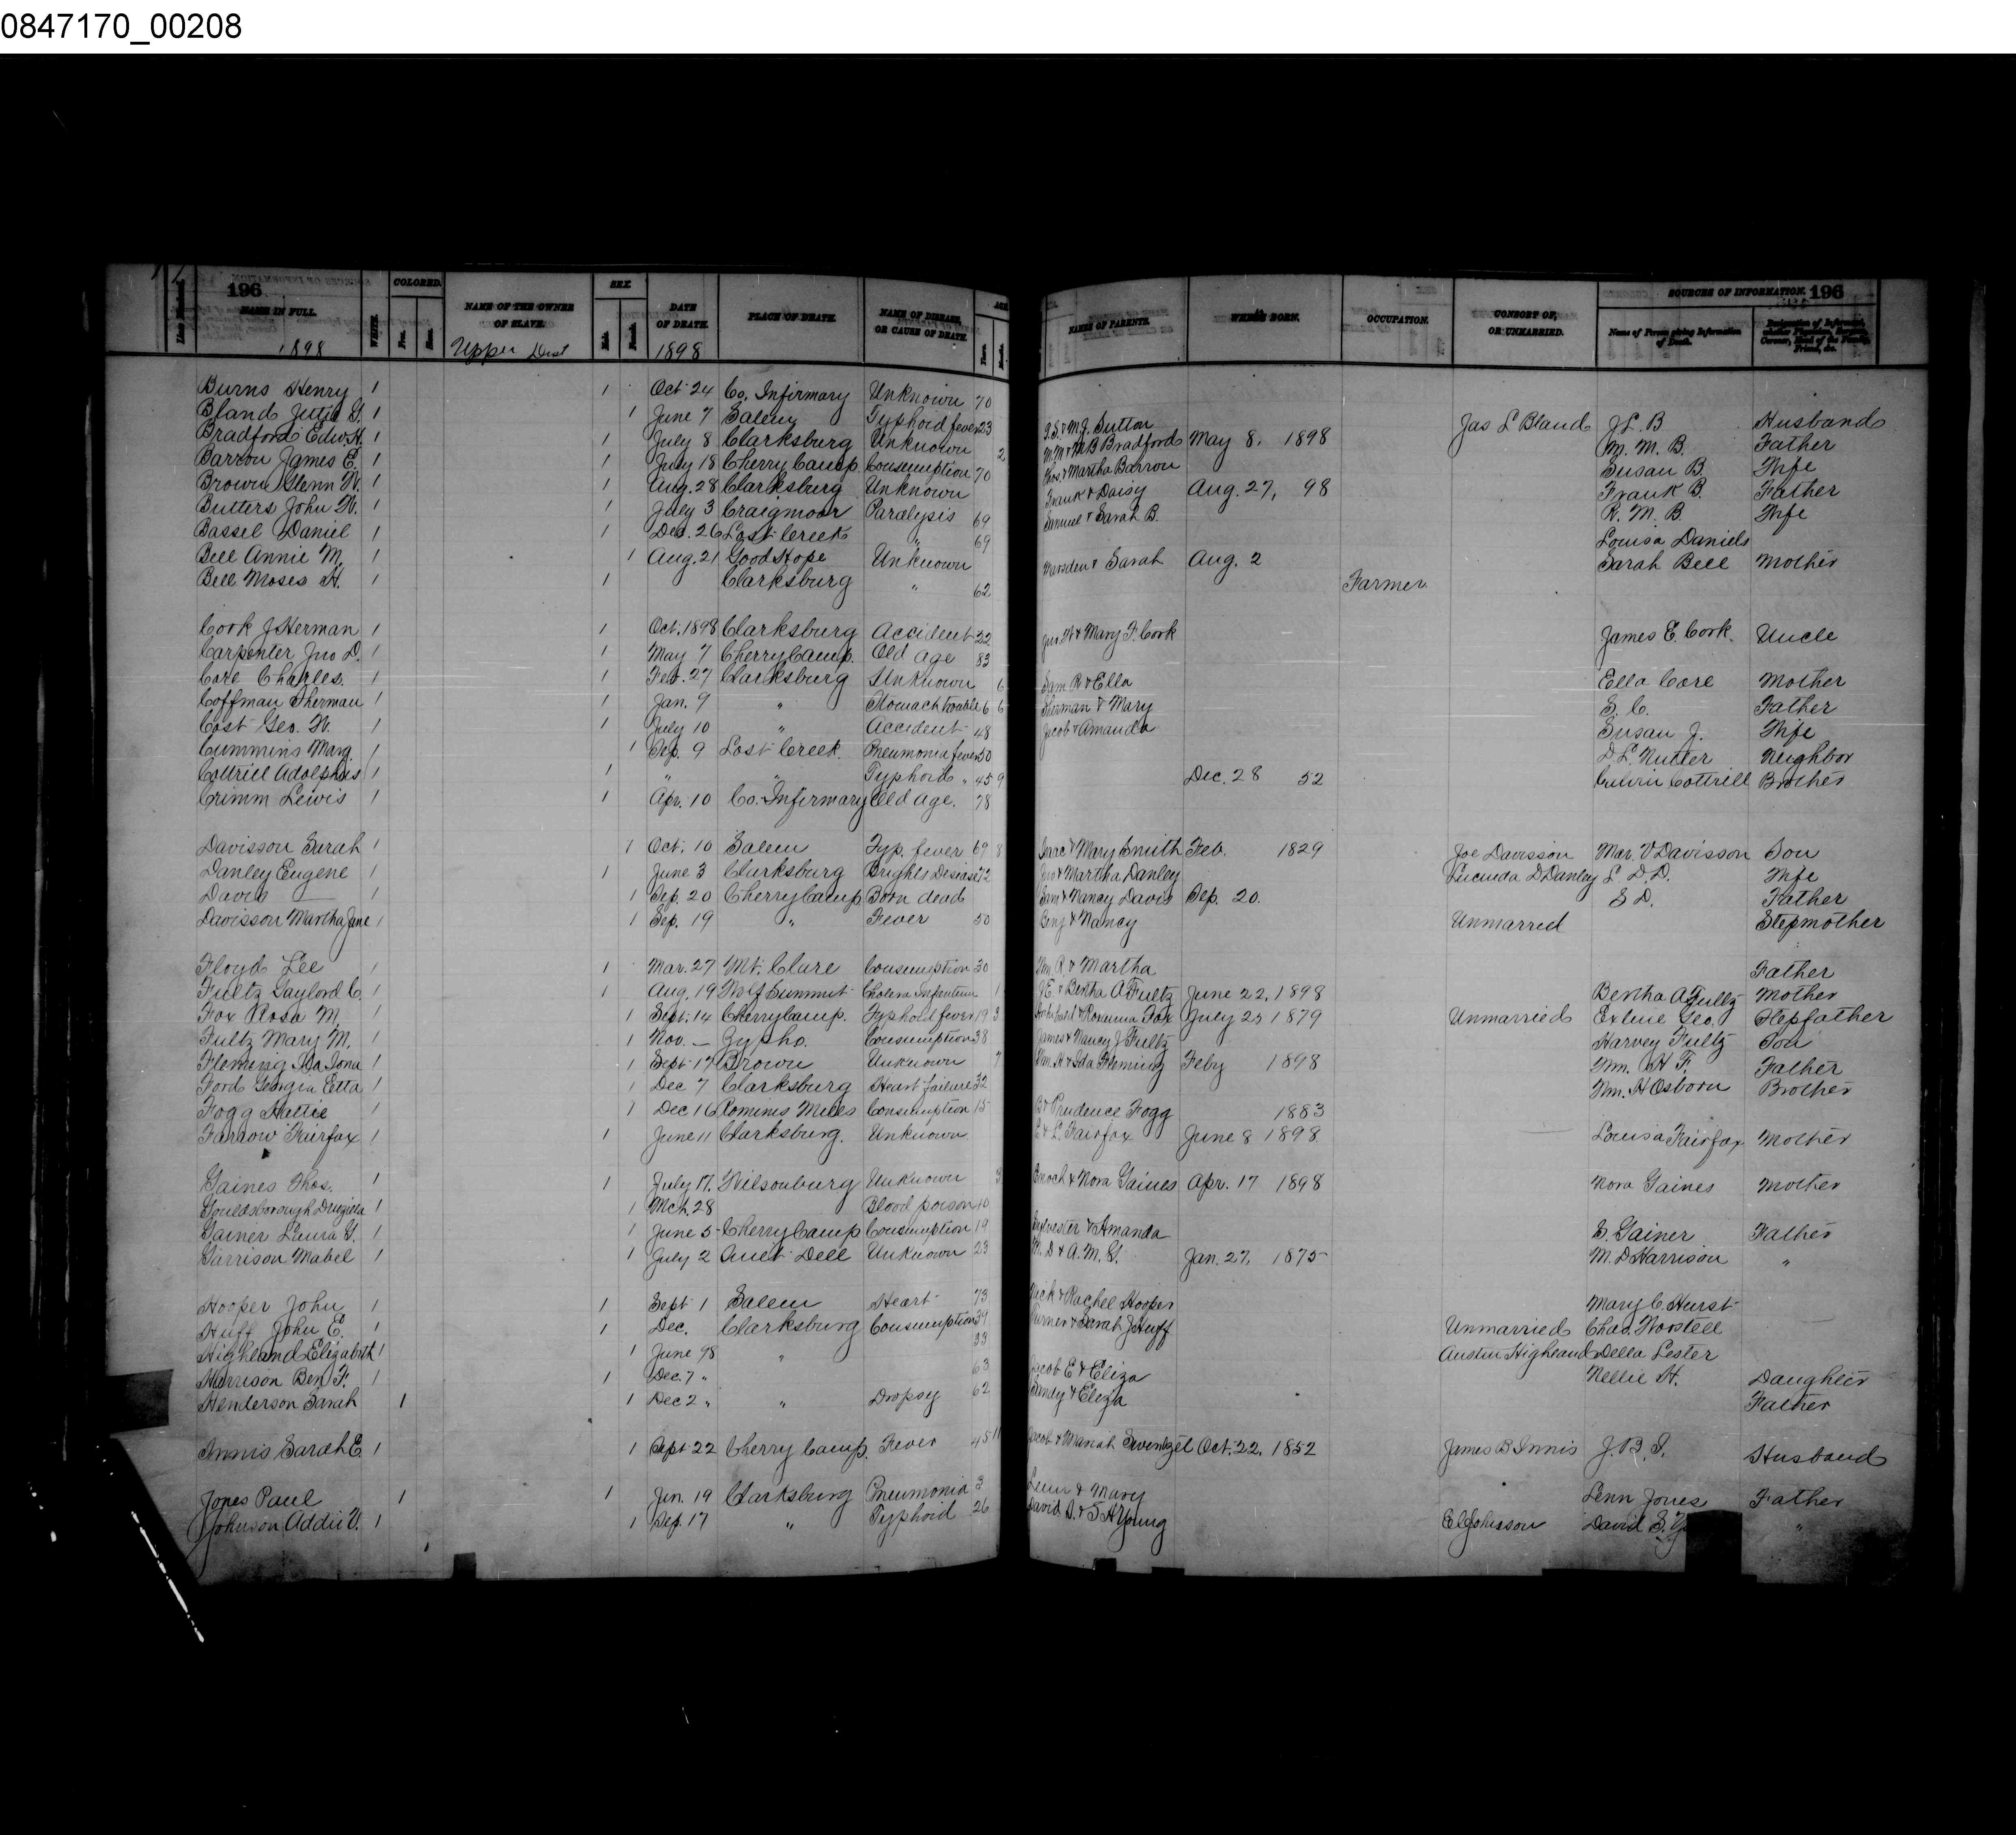 0847170_00208
196
NAME IN FULL. WHITE. COLORED. Free. Slave. NAME OF THE OWNER OF SLAVE. SEX. Male. Female. DATE OF DEATH. PLACE OF DEATH. NAME OF DISEASE, OR CAUSE OF DEATH. AGE Years. Months. NAME OF PARENTS. WHERE BORN. OCCUPATION. CONSORT OF, OR UNMARRIED. SOURCES OF INFORMATION. 196 Name of Person giving Information of Death.
1898 Upper Dist 1898
Burns Henry 1 1 Oct 24 Co. Infirmary Unknown 70
Bland Jutie G. 1 1 June 7 Salem Typhoid fever 23 M.J. Sutton Jas L Bland J L. B Husband
Bradford Edw H. 1 1 July 8 Clarksburg Unknown 2 M M & M B Bradford May 8, 1898 M. M. B. Father
Barron James E. 1 1 July 18 Cherry Camp Consumption 70 Thos. & Martha Barron Susan B. Wife
Brown Glenn W. 1 1 Aug. 28 Clarksburg Unknown Frank & Daisy Aug. 27, 98 Frank B. Father
Butters John W. 1 1 July 3 Craigmoor Paralysis 69 Samuel & Sarah B. R. M. B. Wife
Bassel Daniel 1 1 Dec. 26 Lost Creek " 69 Louisa Daniels
Bell Annie M. 1 1 Aug. 21 Good Hope Unknown Marsden & Sarah Aug. 2 Sarah Bell Mother
Bell Moses H. 1 1 Clarksburg " 62 Farmer
Cook J Herman 1 1 Oct. 1898 Clarksburg Accident 22 Mary F. Cook James E. Cook. Uncle
Carpenter Jno D. 1 1 May 7 Cherry Camp. Old age 83
Core Charles. 1 1 Feb. 27 Clarksburg Unknown 6 Sam R & Ella Ella Core Mother
Coffman Sherman 1 1 Jan. 9 " Stomach trouble 6 6 Sherman & Mary S. C. Father
Cost Geo. W. 1 1 July 10 " Accident 48 Jacob & Amanda Susan J. Wife
Cummins Marg. 1 1 Sep. 9 Lost Creek Pneumonia fever 50 D. L. Nutter Neighbor
Cottrill Adolphus 1 1 " " Typhoid " 45 9 Dec. 28 52 Calvin Cottrill Brother
Crimm Lewis 1 1 Apr. 10 Co. Infirmary Old age. 78
Davisson Sarah 1 Oct. 10 Salem Typ. fever 69 8 Isaac & Mary Smith Feb. 1829 Joe Davisson Mar. V Davisson Son
Danley Eugene 1 1 June 3 Clarksburg Brights Desiase 72 Jno & Martha Danley Lucinda D Danley L. D. D. Wife
Davis — 1 Sep. 20 Cherry Camp Born dead Sam & Nancy Davis Sep. 20. S D. Father
Davisson Martha Jane 1 1 Sep. 19 " Fever 50 Benj & Nancy Unmarried Stepmother
Floyd Lee 1 1 Mar. 27 Mt. Clare Consumption 30 Wm. R. & Martha Father
Fultz Gaylord C. 1 1 Aug. 19 Wolf Summit Cholera Infantum 1 J. E. & Bertha A Fultz June 22, 1898 Bertha A Fultz Mother
Fox Rosa M. 1 1 Sept. 14 Cherry Camp. Typhoid fever 19 3 & Roxanna Fox July 25 1879 Unmarried Exline Geo. Stepfather
Fultz Mary M. 1 1 Nov. — Gypho. Consumption 38 James & Nancy J Fultz Harvey Fultz Son
Fleming Ida Iona 1 1 Sept 17 Brown Unknown 7 Wm. H & Ida Fleming Feby 1898 Wm. H F. Father
Ford Georgia Etta 1 1 Dec 7 Clarksburg Heart failure 32 Wm. H Osborn Brother
Fogg Hattie 1 1 Dec 16 Romines Mills Consumption 15 & Prudence Fogg 1883
Farrow Fairfax 1 1 June 11 Clarksburg. Unknown E & L. Fairfax June 8 1898 — Louisa Fairfax Mother
Gaines Thos. 1 1 July 17. Wilsonburg Unknown 3 Enoch & Nora Gaines Apr. 17 1898 Nora Gaines Mother
Gouldsborough Druzilla 1 1 Mch. 28 Blood poison 10
Gainer Laura G. 1 1 June 5 Cherry Camp Consumption 19 Sylvester & Amanda S. Gainer Father
Garrison Mabel 1 1 July 2 Quiet Dell Unknown 23 M. D & A. M. G. Jan. 27, 1875 M. D Harrison "
Hooper John 1 1 Sept 1 Salem Heart 73 Nick & Rachel Hooper Mary C. Hurst
Huff John E. 1 1 Dec. Clarksburg Consumption 39 Turner & Sarah J Huff Unmarried Chas. Worstell
Highland Elizabeth 1 1 June 98 " 33 Austin Highland Della Lester
Harrison Ben F. 1 1 Dec. 7 " 63 Jacob E & Eliza Nellie H. Daughter
Henderson Sarah 1 1 Dec 2 " " Dropsy 62 Sandy & Eliza Father
Annis Sarah E. 1 1 Sept 22 Cherry Camp. Fever 45 11 Jacob & Mariah Swentzel Oct. 22, 1852 James B Innis J. B. I. Husband
Jones Paul 1 1 Jan. 19 Clarksburg Pneumonia 3 Lenn & Mary Lenn Jones Father
Johnson Addie V. 1 1 Sep. 17 " Typhoid 26 David S. & S H Young E L Johnson David S. Y "